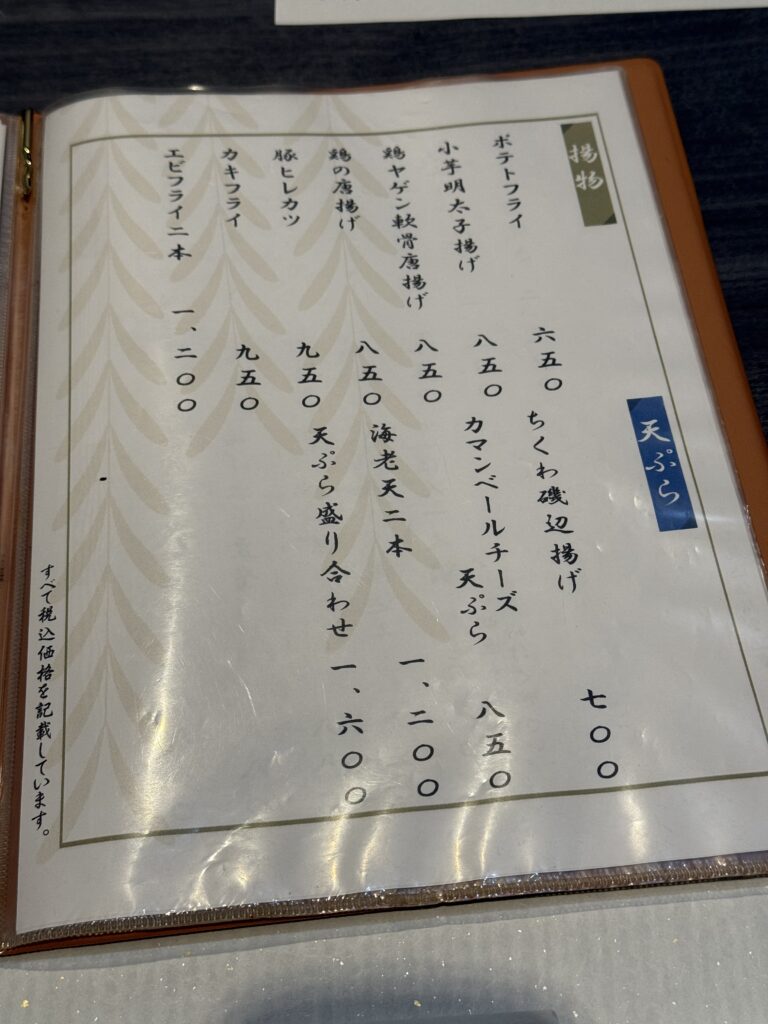 揚物
ポテトフライ
六五〇
小芋明太子揚げ
八五〇
鶏ヤゲン軟骨唐揚げ
八五〇
鶏の唐揚げ
八五〇
豚ヒレカツ
九五〇
カキフライ
九五〇
エビフライ二本
一、二〇〇
天ぷら
ちくわ磯辺揚げ
七〇〇
カマンベールチーズ
天ぷら
八五〇
海老天二本
一、二〇〇
天ぷら盛り合わせ
一、六〇〇
すべて税込価格を記載しています。